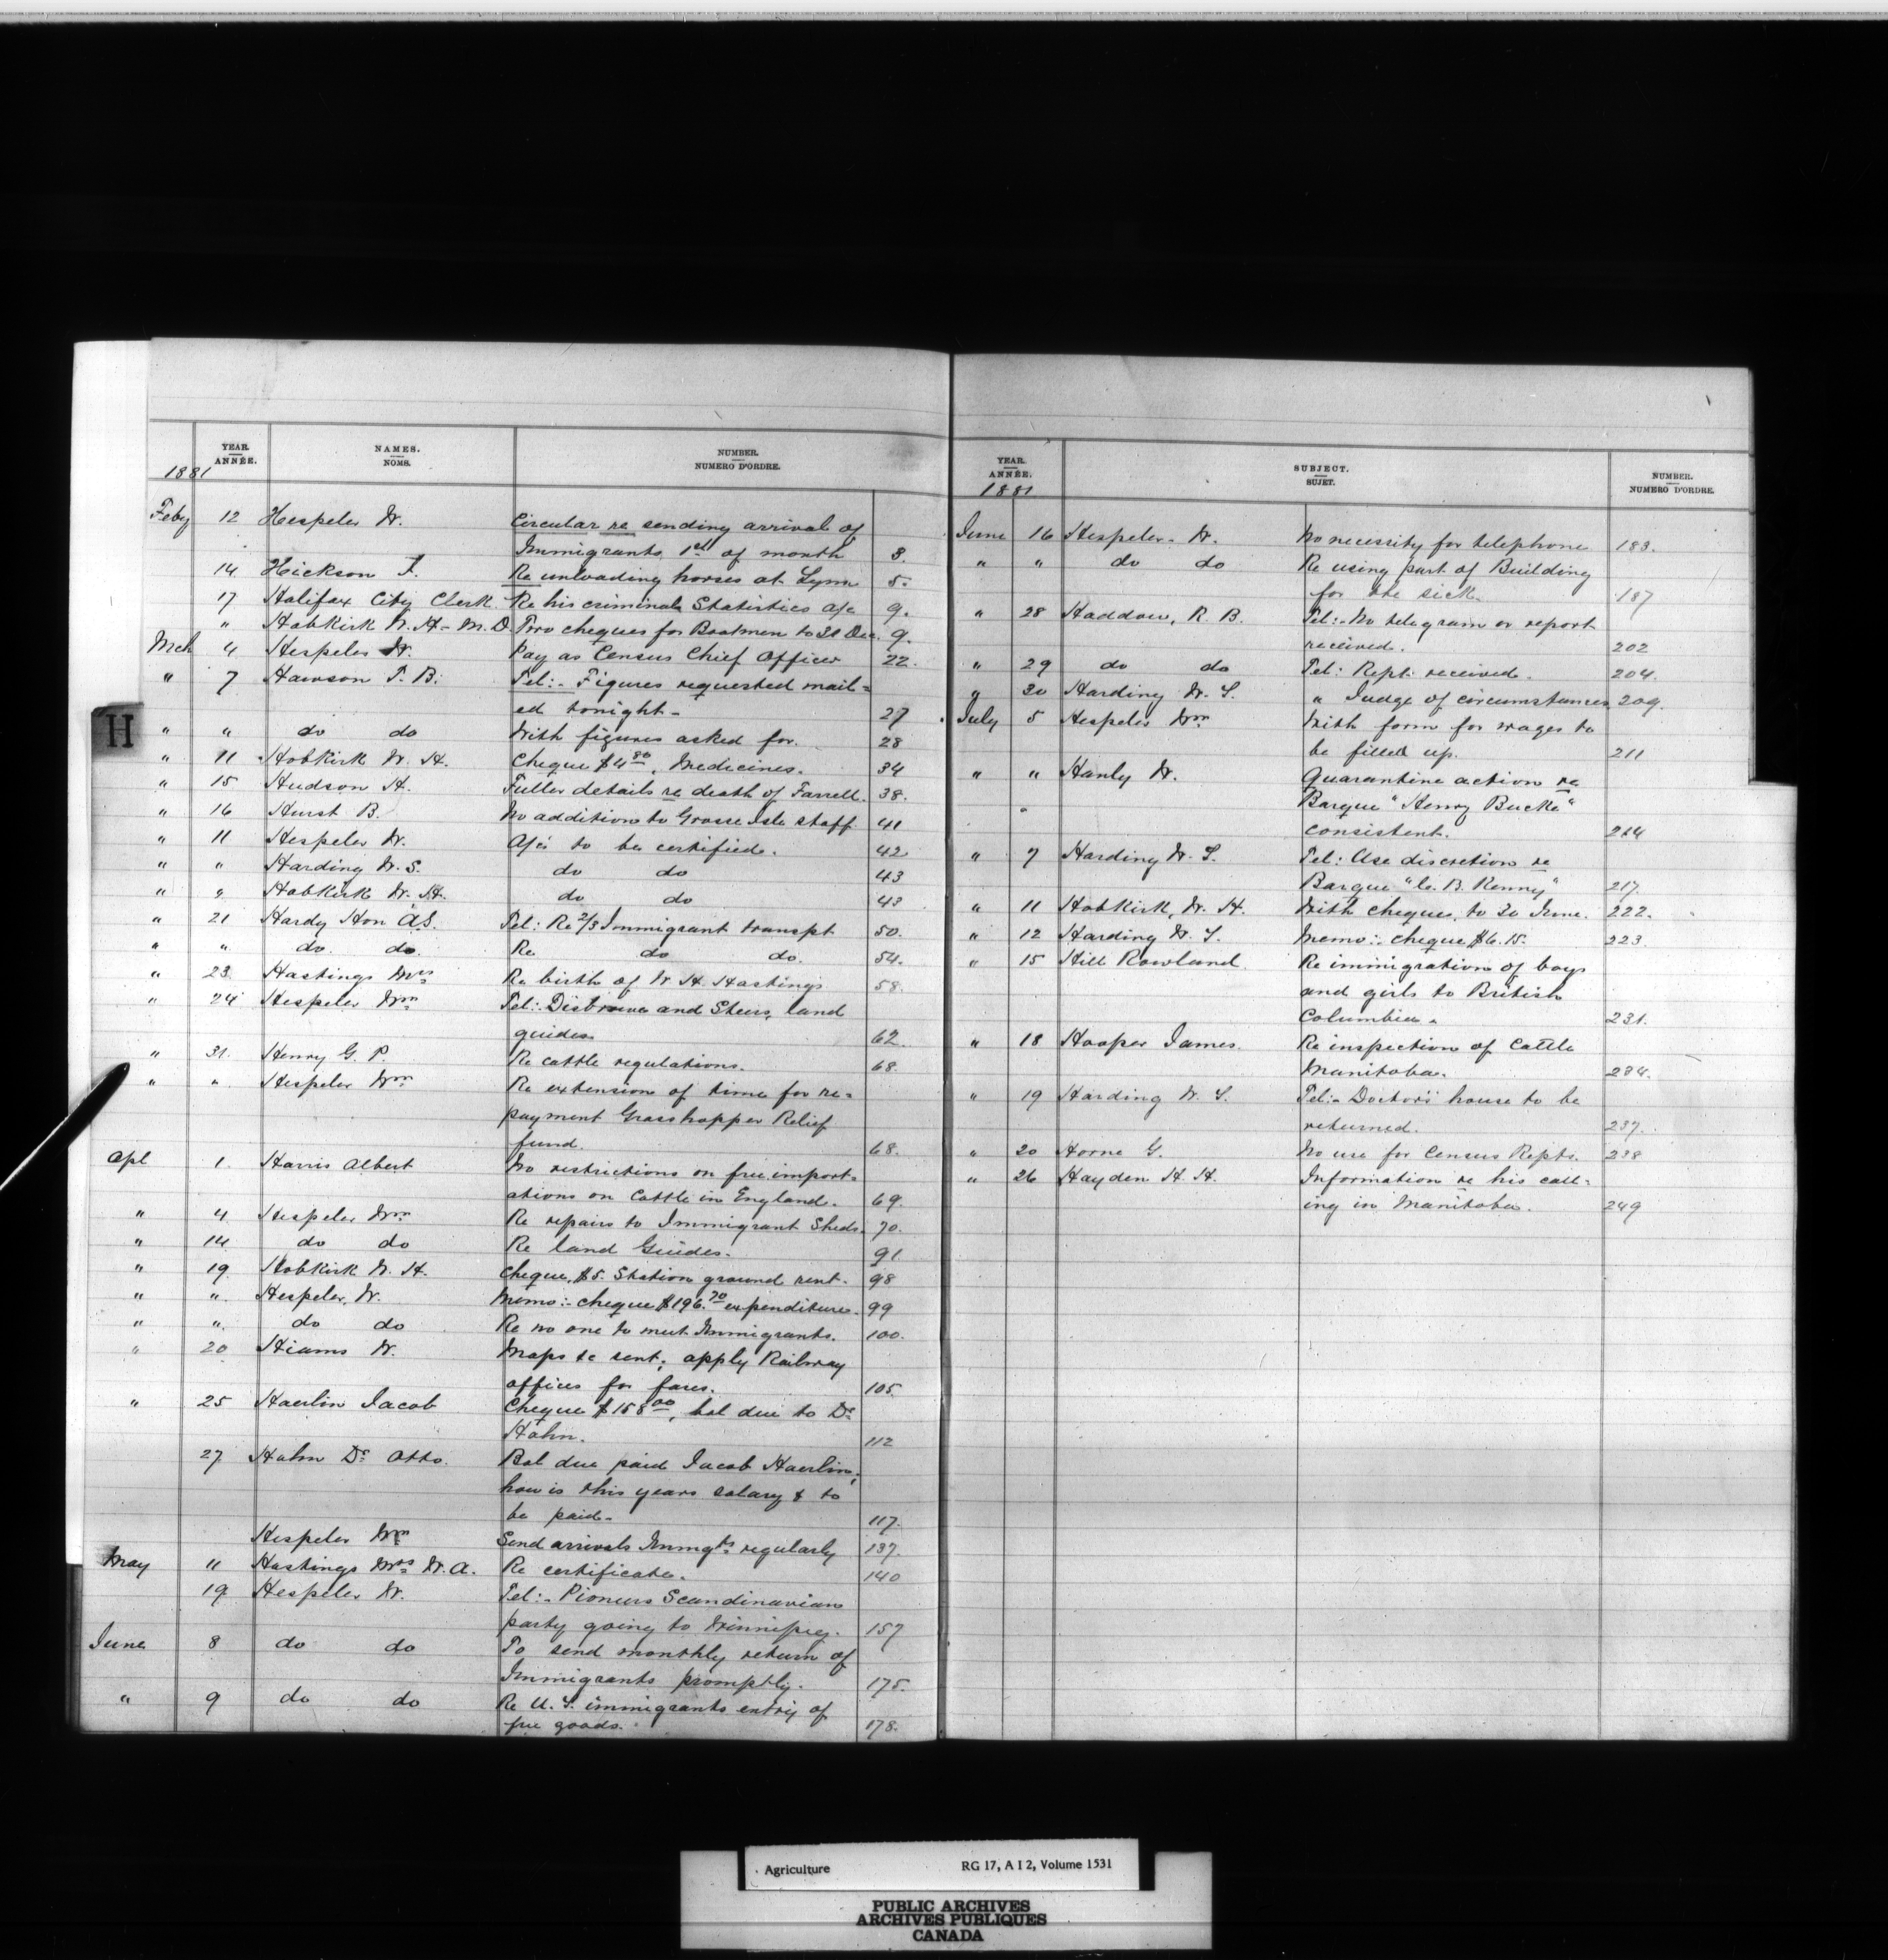 YEAR.
ANNÉE.
NAMES.
NOMS.
NUMBER.
NUMERO D'ORDRE.
1881
Feby 12 Hespeler W. Circular re sending arrival of
Immigrants 1st of month 3.
14 Hickson J. Re unloading horses at Lynn 5.
17 Halifax City Clerk Re his criminal Statistics a/c 9.
" Hobkirk W. H. M.D. Two cheques for Boatmen to 31 Dec. 9.
Mch 4 Hespeler W. Pay as Census Chief Officer 22.
" 7 Hawson T. B. Tel:- Figures requested mail=
ed tonight- 27
" " do do With figures asked for. 28
" 11 Hobkirk W. H. Cheque $4 80, Medicines. 34
" 15 Hudson H. Fuller details re death of Farrell. 38.
" 16 Hurst B. No addition to Grosse Isle staff 41
" 11 Hespeler W. A/cs to be certified. 42
" " Harding W. S. do do 43
" " Hobkirk W. H. do do 43
" 21 Hardy Hon A.S. Tel: Re 2/3 Immigrant transpt 50.
" " do. do. Re do do. 54.
" 23 Hastings Mrs Re birth of W. H. Hastings 58.
" 24 Hespeler Wm Tel: and land
guides. 62.
" 31. Henry G. P. Re cattle regulations. 68.
" " Hespeler Wm Re extension of time for re=
payment Grasshopper Relief
fund. 68.
Apl 1. Harris Albert No restrictions on free import=
ations on Cattle in England. 69.
" 4 Hespeler Wm Re repairs to Immigrant Sheds. 70.
" 14 do do Re land Guides. 91
" 19 Hobkirk W. H. Cheque, $5. Station ground rent. 98
" " Hespeler, W. Memo:- cheque $196.70 expenditure. 99
" " do do Re no one to meet Immigrants. 100.
" 20 Hiams W. Maps &c sent; apply Railway
offices for fares. 105.
" 25 Haerlin Jacob Cheque $158 00, bal due to Dr
Hahn. 112
27 Hahn Dr Otto. Bal due paid Jacob Haerlin;
how is this years salary & to
be paid- 117.
Hespeler Wm Send arrivals Immgts regularly 137.
May 11 Hastings Mrs W. A. Re certificate. 140
19 Hespeler W. Tel:- Pioneers Scandinavian
party going to Winnipeg. 157
June 8 do do To send monthly return of
Immigrants promptly. 175.
" 9 do do Re U. S. immigrants entry of
free goods. 178.
H
YEAR.
ANNÉE.
SUBJECT.
SUJET.
NUMBER.
NUMERO D'ORDRE.
1881
June 16 Hespeler W. No necessity for telephone 183.
" " do do Re using part of Building
for the sick. 187
" 28 Haddow, R. B. Tel:- No telegram or report
received. 202
" 29 do do Tel: Rept. received. 204.
" 30 Harding W. S. " Judge of circumstances 209.
July 5 Hespeler Wm With form for wages to
be filled up. 211
" " Hanly W. Quarantine action re
Barque "Henry Bucke"
consistent. 214
" 7 Harding W. S. Tel: Use discretion re
Barque "C. B. Kenny" 217.
" 11 Hobkirk, W. H. With cheques, to 30 June. 222.
" 12 Harding W. S. Memo:- cheque $6.15. 223.
" 15 Hill Rowland Re immigration of boys
and girls to British
Columbia. 231.
" 18 Hooper James. Re inspection of Cattle
Manitoba. 234.
" 19 Harding W. S. Tel:- Doctors' house to be
returned. 237.
" 20 Horne G. No use for Census Repts. 238
" 26 Hayden H. H. Information re his call=
ing in Manitoba. 249
Agriculture RG 17, A I 2, Volume 1531
PUBLIC ARCHIVES
ARCHIVES PUBLIQUES
CANADA